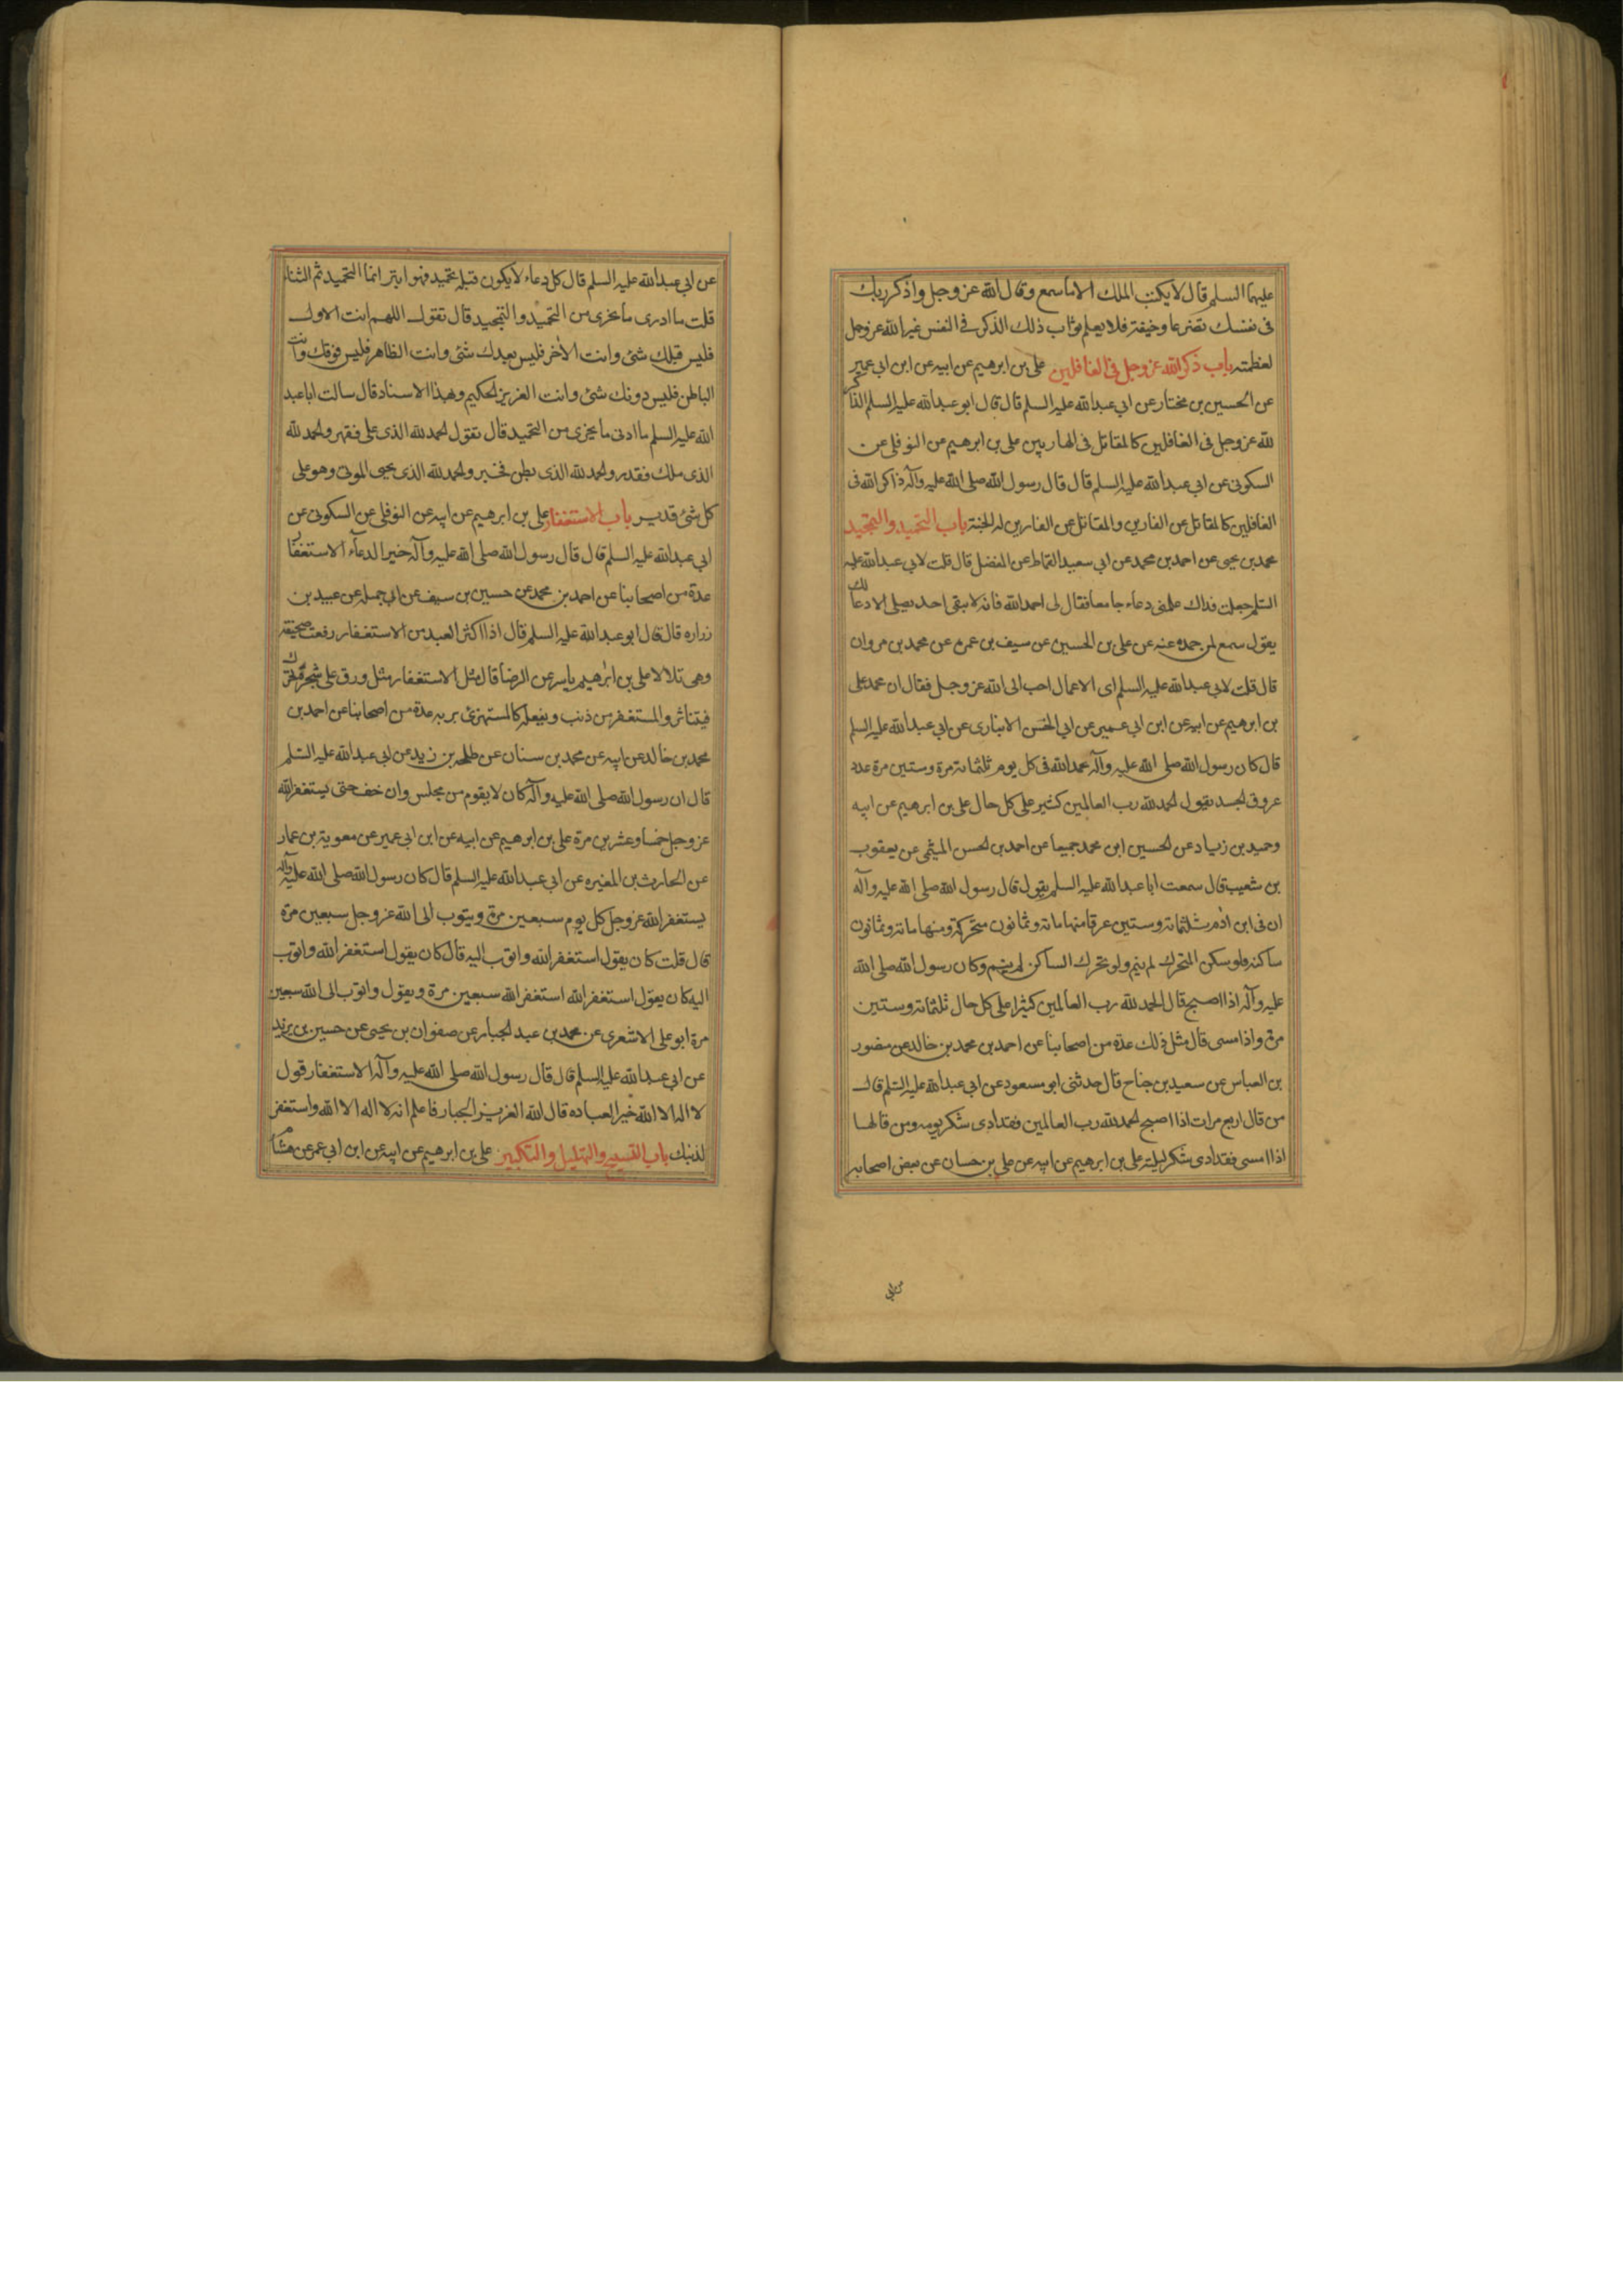 عليهما السلم قال لا يكتب الملك الا ما سمع وقال الله عز وجل واذكر ربك
فى نفسك تضرعا وخيفة فلا يعلم ثواب ذلك الذكر فى النفس غير الله عز وجل
لعظمته باب ذكر الله عز وجل فى الغافلين على بن ابرهيم عن ابيه عن ابن ابى عمير
عن الحسين بن مختار عن ابى عبد الله عليه السلم قال قال ابو عبد الله عليه السلم الذاكر
لله عز وجل فى الغافلين كالمقاتل فى الهاربين على بن ابرهيم عن النوفلى عن
السكونى عن ابى عبد الله عليه السلم قال قال رسول الله صلى الله عليه وآله ذاكر الله فى
الغافلين كالمقاتل عن الفارين والمقاتل عن الفارين له الجنة باب التحميد والتمجيد
محمد بن يحيى عن احمد بن محمد عن ابى سعيد القماط عن المفضل قال قلت لابى عبد الله عليه
السلم جعلت فداك علمنى دعاء جامعا فقال لى احمد الله فانه لا يبقى احد يصلى الا دعا لك
يقول سمع لمن حمده عنه عن على بن الحسين عن سيف بن عمره عن محمد بن مروان
قال قلت لابى عبد الله عليه السلم اى الاعمال احب الى الله عز وجل فقال ان تحمد على
بن ابرهيم عن ابيه عن ابن ابى عمير عن ابى الحسن الانبارى عن ابى عبد الله عليه السلم
قال كان رسول الله صلى الله عليه وآله يحمد الله فى كل يوم ثلثمائة مرة وستين مرة عدد
عروق الجسد يقول الحمد لله رب العالمين كثير على كل حال على بن ابرهيم عن ابيه
وحميد بن زياد عن الحسين ابن محمد جميعا عن احمد بن الحسن الميثمى عن يعقوب
بن شعيب قال سمعت ابا عبد الله عليه السلم يقول قال رسول الله صلى الله عليه وآله
ان فى ابن آدم ثلثمائة وستين عرقا منها مائة وثمانون متحركة ومنها مائة وثمانون
ساكنة فلو سكن المتحرك لم ينم ولو تحرك الساكن لم ينم وكان رسول الله صلى الله
عليه وآله اذا اصبح قال الحمد لله رب العالمين كثيرا على كل حال ثلثمائة وستين
مرة واذا مسى قال مثل ذلك عدة من اصحابنا عن احمد بن محمد بن خالد عن منصور
بن العباس عن سعيد بن جناح قال حدثنى ابو مسعود عن ابى عبد الله عليه السلم قال
من قال اربع مرات اذا اصبح الحمد لله رب العالمين فقد ادى شكر يومه ومن قالها
اذا امسى فقد ادى شكر ليلته على بن ابرهيم عن ابيه عن على بن حسان عن بعض اصحابه
عن ابى
عن ابى عبد الله عليه السلم قال كل دعاء لا يكون قبله تحميد فهو ابتر انما التحميد ثم الثناء
قلت ما ادرى ما يجزى من التحميد والتمجيد قال تقول اللهم انت الاول
فليس قبلك شئ وانت الآخر فليس بعدك شئ وانت الظاهر فليس فوقك وانت
الباطن فليس دونك شئ وانت العزيز الحكيم وبهذا الاسناد قال سالت ابا عبد
الله عليه السلم ما ادنى ما يجزى من التحميد قال تقول الحمد لله الذى علا فقهر والحمد لله
الذى ملك فقدر والحمد لله الذى بطن فخبر والحمد لله الذى يحيى الموتى وهو على
كل شئ قدير باب الاستغفار على بن ابرهيم عن ابيه عن النوفلى عن السكونى عن
ابى عبد الله عليه السلم قال قال رسول الله صلى الله عليه وآله خير الدعآء الاستغفار
عدة من اصحابنا عن احمد بن محمد عن حسين بن سيف عن ابى جميله عن عبيد بن
زراره قال قال ابو عبد الله عليه السلم قال اذا اكثر العبد من الاستغفار رفعت صحيفته
وهى تلالا على بن ابرهيم ياسر عن الرضا قال مثل الاستغفار مثل ورق على شجرة تحرك
فيتناثر والمستغفر من ذنب ويفعله كالمستهزئ بربه عدة من اصحابنا عن احمد بن
محمد بن خالد عن ابيه عن محمد بن سنان عن طلحه بن زيد عن ابى عبد الله عليه السلم
قال ان رسول الله صلى الله عليه وآله كان لا يقوم من مجلس وان خف حتى يستغفر الله
عز وجل خمسا وعشرين مرة على بن ابرهيم عن ابيه عن ابن ابى عمير عن معوية بن عمار
عن الحارث بن المغيره عن ابى عبد الله عليه السلم قال كان رسول الله صلى الله عليه وآله
يستغفر الله عز وجل كل يوم سبعين مرة ويتوب الى الله عز وجل سبعين مرة
قال قلت كان يقول استغفر الله واتوب اليه قال كان يقول استغفر الله واتوب
اليه كان يقول استغفر الله استغفر الله سبعين مرة ويقول واتوب الى الله سبعين
مرة ابو على الاشعرى عن محمد بن عبد الجبار عن صفوان بن يحيى عن حسين بن يزيد
عن ابى عبد الله عليه السلم قال قال رسول الله صلى الله عليه وآله الاستغفار قول
لا اله الا الله خير العباده قال الله العزيز الجبار فاعلم انه لا اله الا الله واستغفر
لذنبك باب التسبيح والتهليل والتكبير على بن ابرهيم عن ابيه عن ابن ابى عمر عن هشام